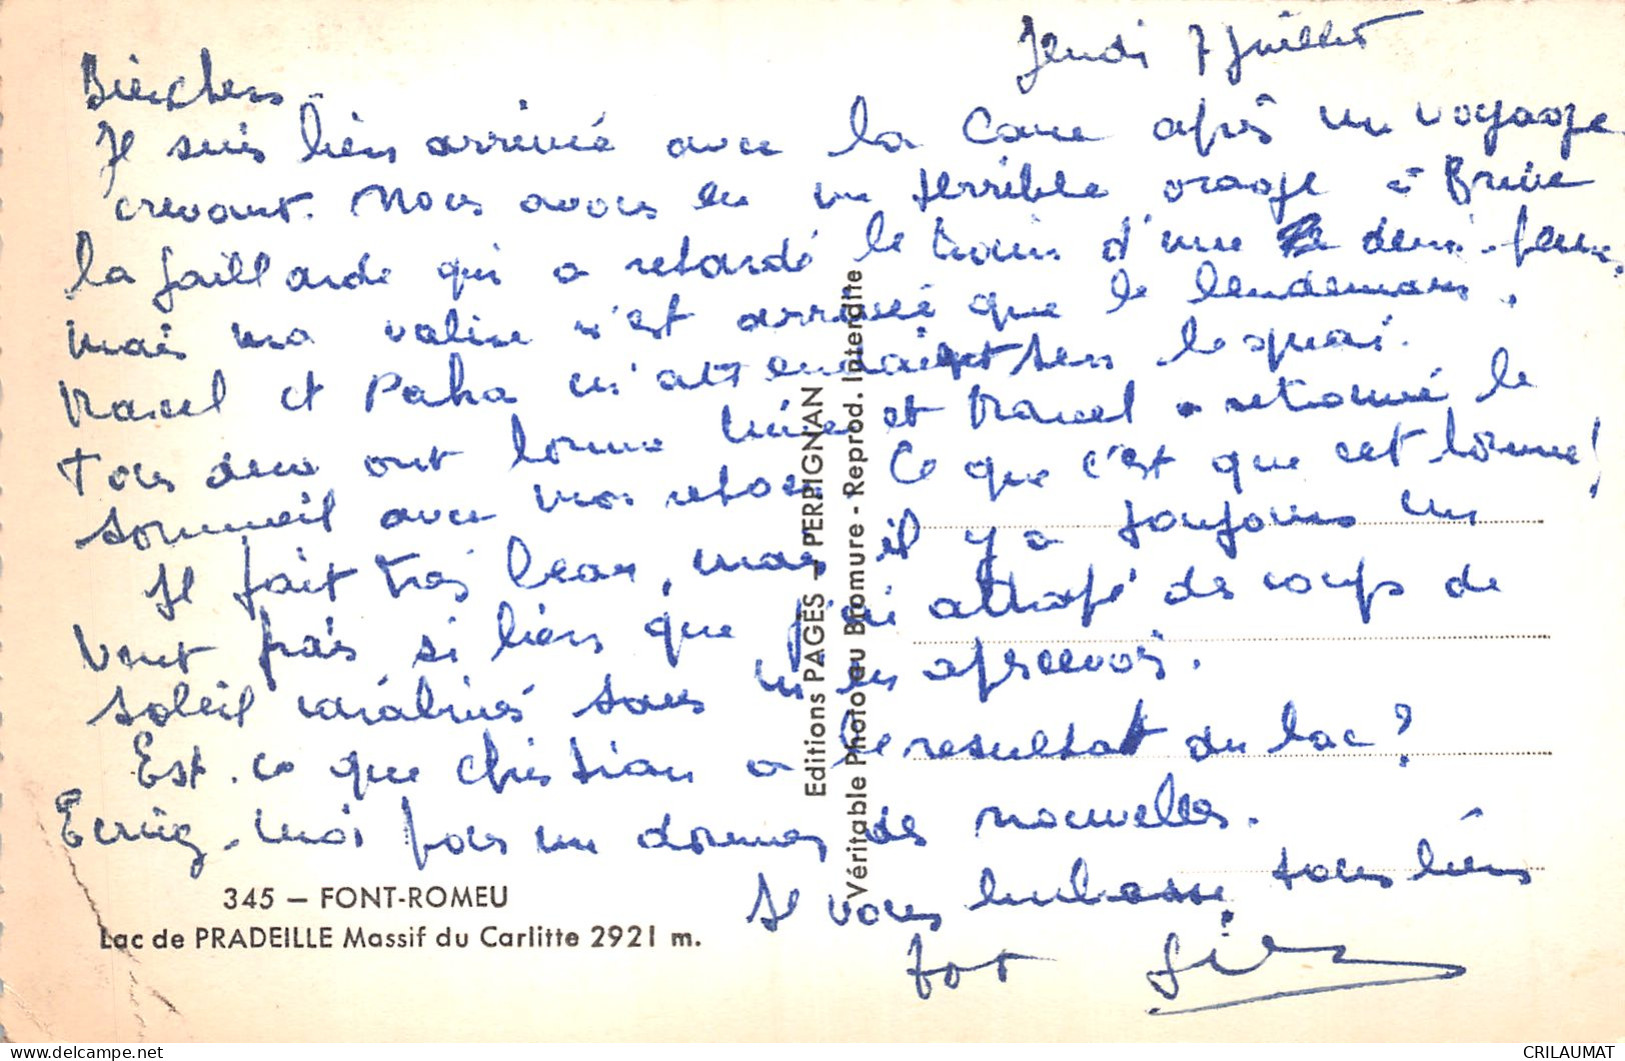 Jeudi 7 Juillet
Je suis bien arrivé avec la après un voyage
crevant. Nous avons eu un terrible orage à Brive
la Gaillarde qui a retardé le train d'une demi-heure,
mais ma valise n'est arrivée que le lendemain.
Marcel et m'attendaient sur le quai.
Tous deux ont bonne mine et Marcel a retrouvé le
sommeil avec mon retour. Ce que c'est que cet homme!
Il fait très beau, mais il y a toujours un
vent frais si bien que j'ai attrapé des coups de
soleil carabinés sans m'en apercevoir.
Est-ce que Christian a le resultat du bac?
Ecrivez-moi pour me donner des nouvelles.
Je vous embrasse tous bien
fort
Editions PAGÈS - PERPIGNAN
Véritable Photo au Bromure - Reprod. Interdite
345 — FONT-ROMEU
Lac de PRADEILLE Massif du Carlitte 2921 m.
CRILAUMAT